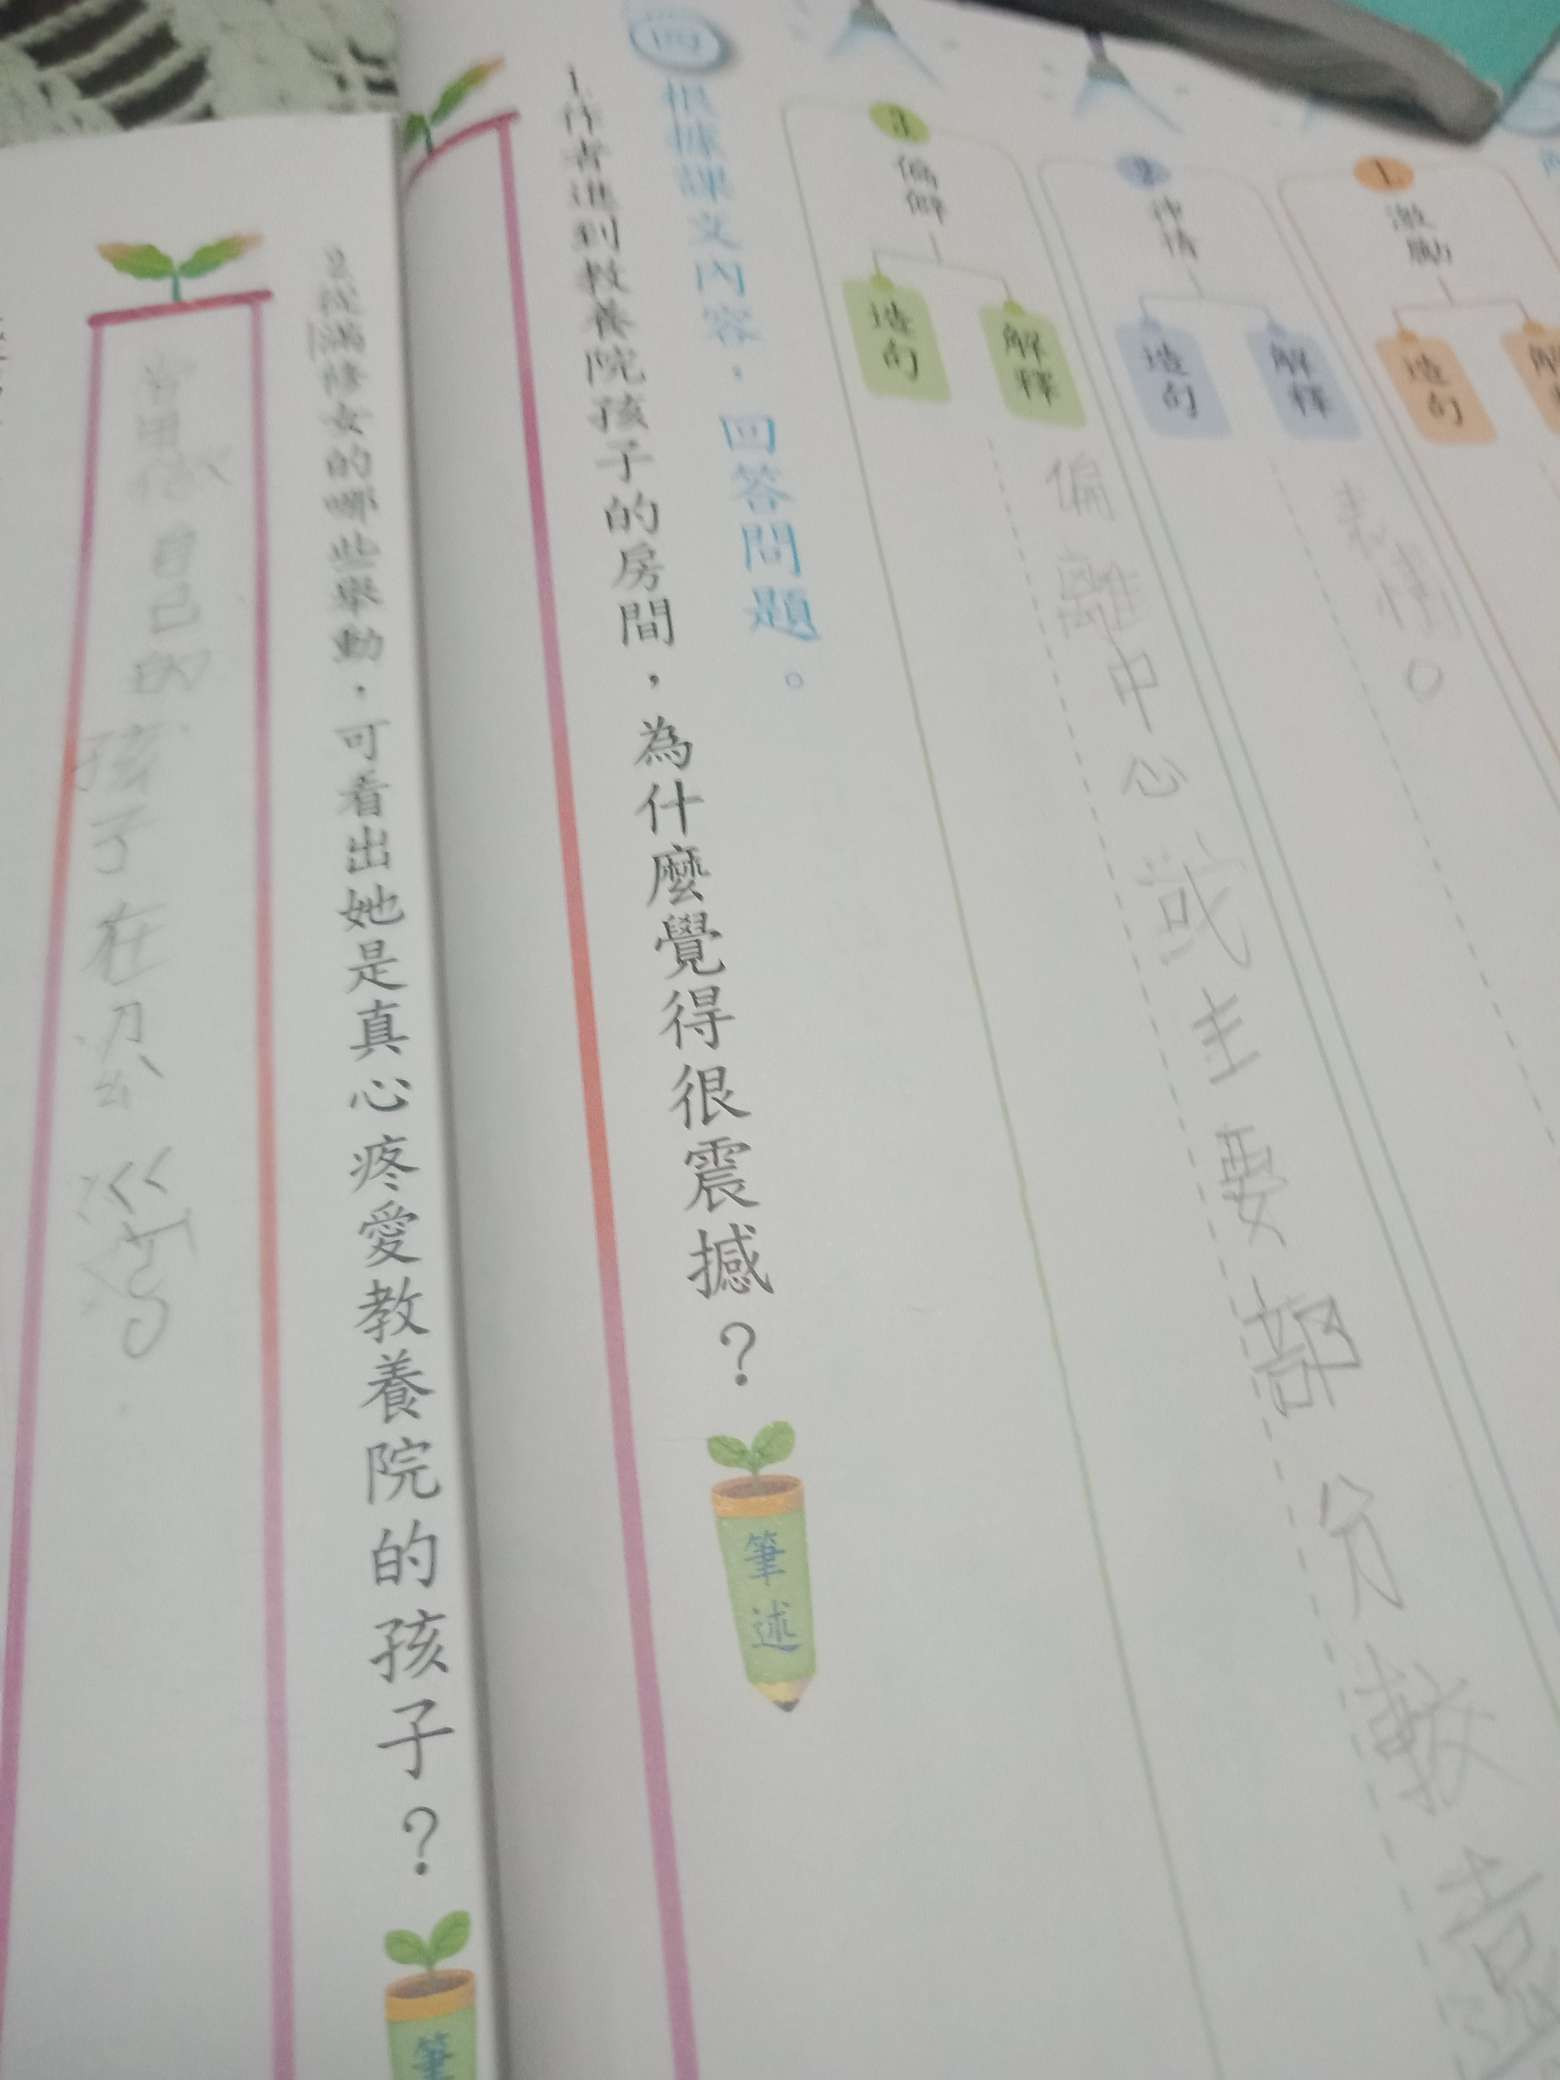 1.
激勵
造句
2
神情
解釋
表情。
造句
3
偏僻
解釋
偏離中心或主要部分較遠
造句
四
根據課文內容，回答問題。
1.作者進到教養院孩子的房間，為什麼覺得很震撼？
筆述
2.從滿修女的哪些舉動，可看出她是真心疼愛教養院的孩子？
筆
自己的孩子在